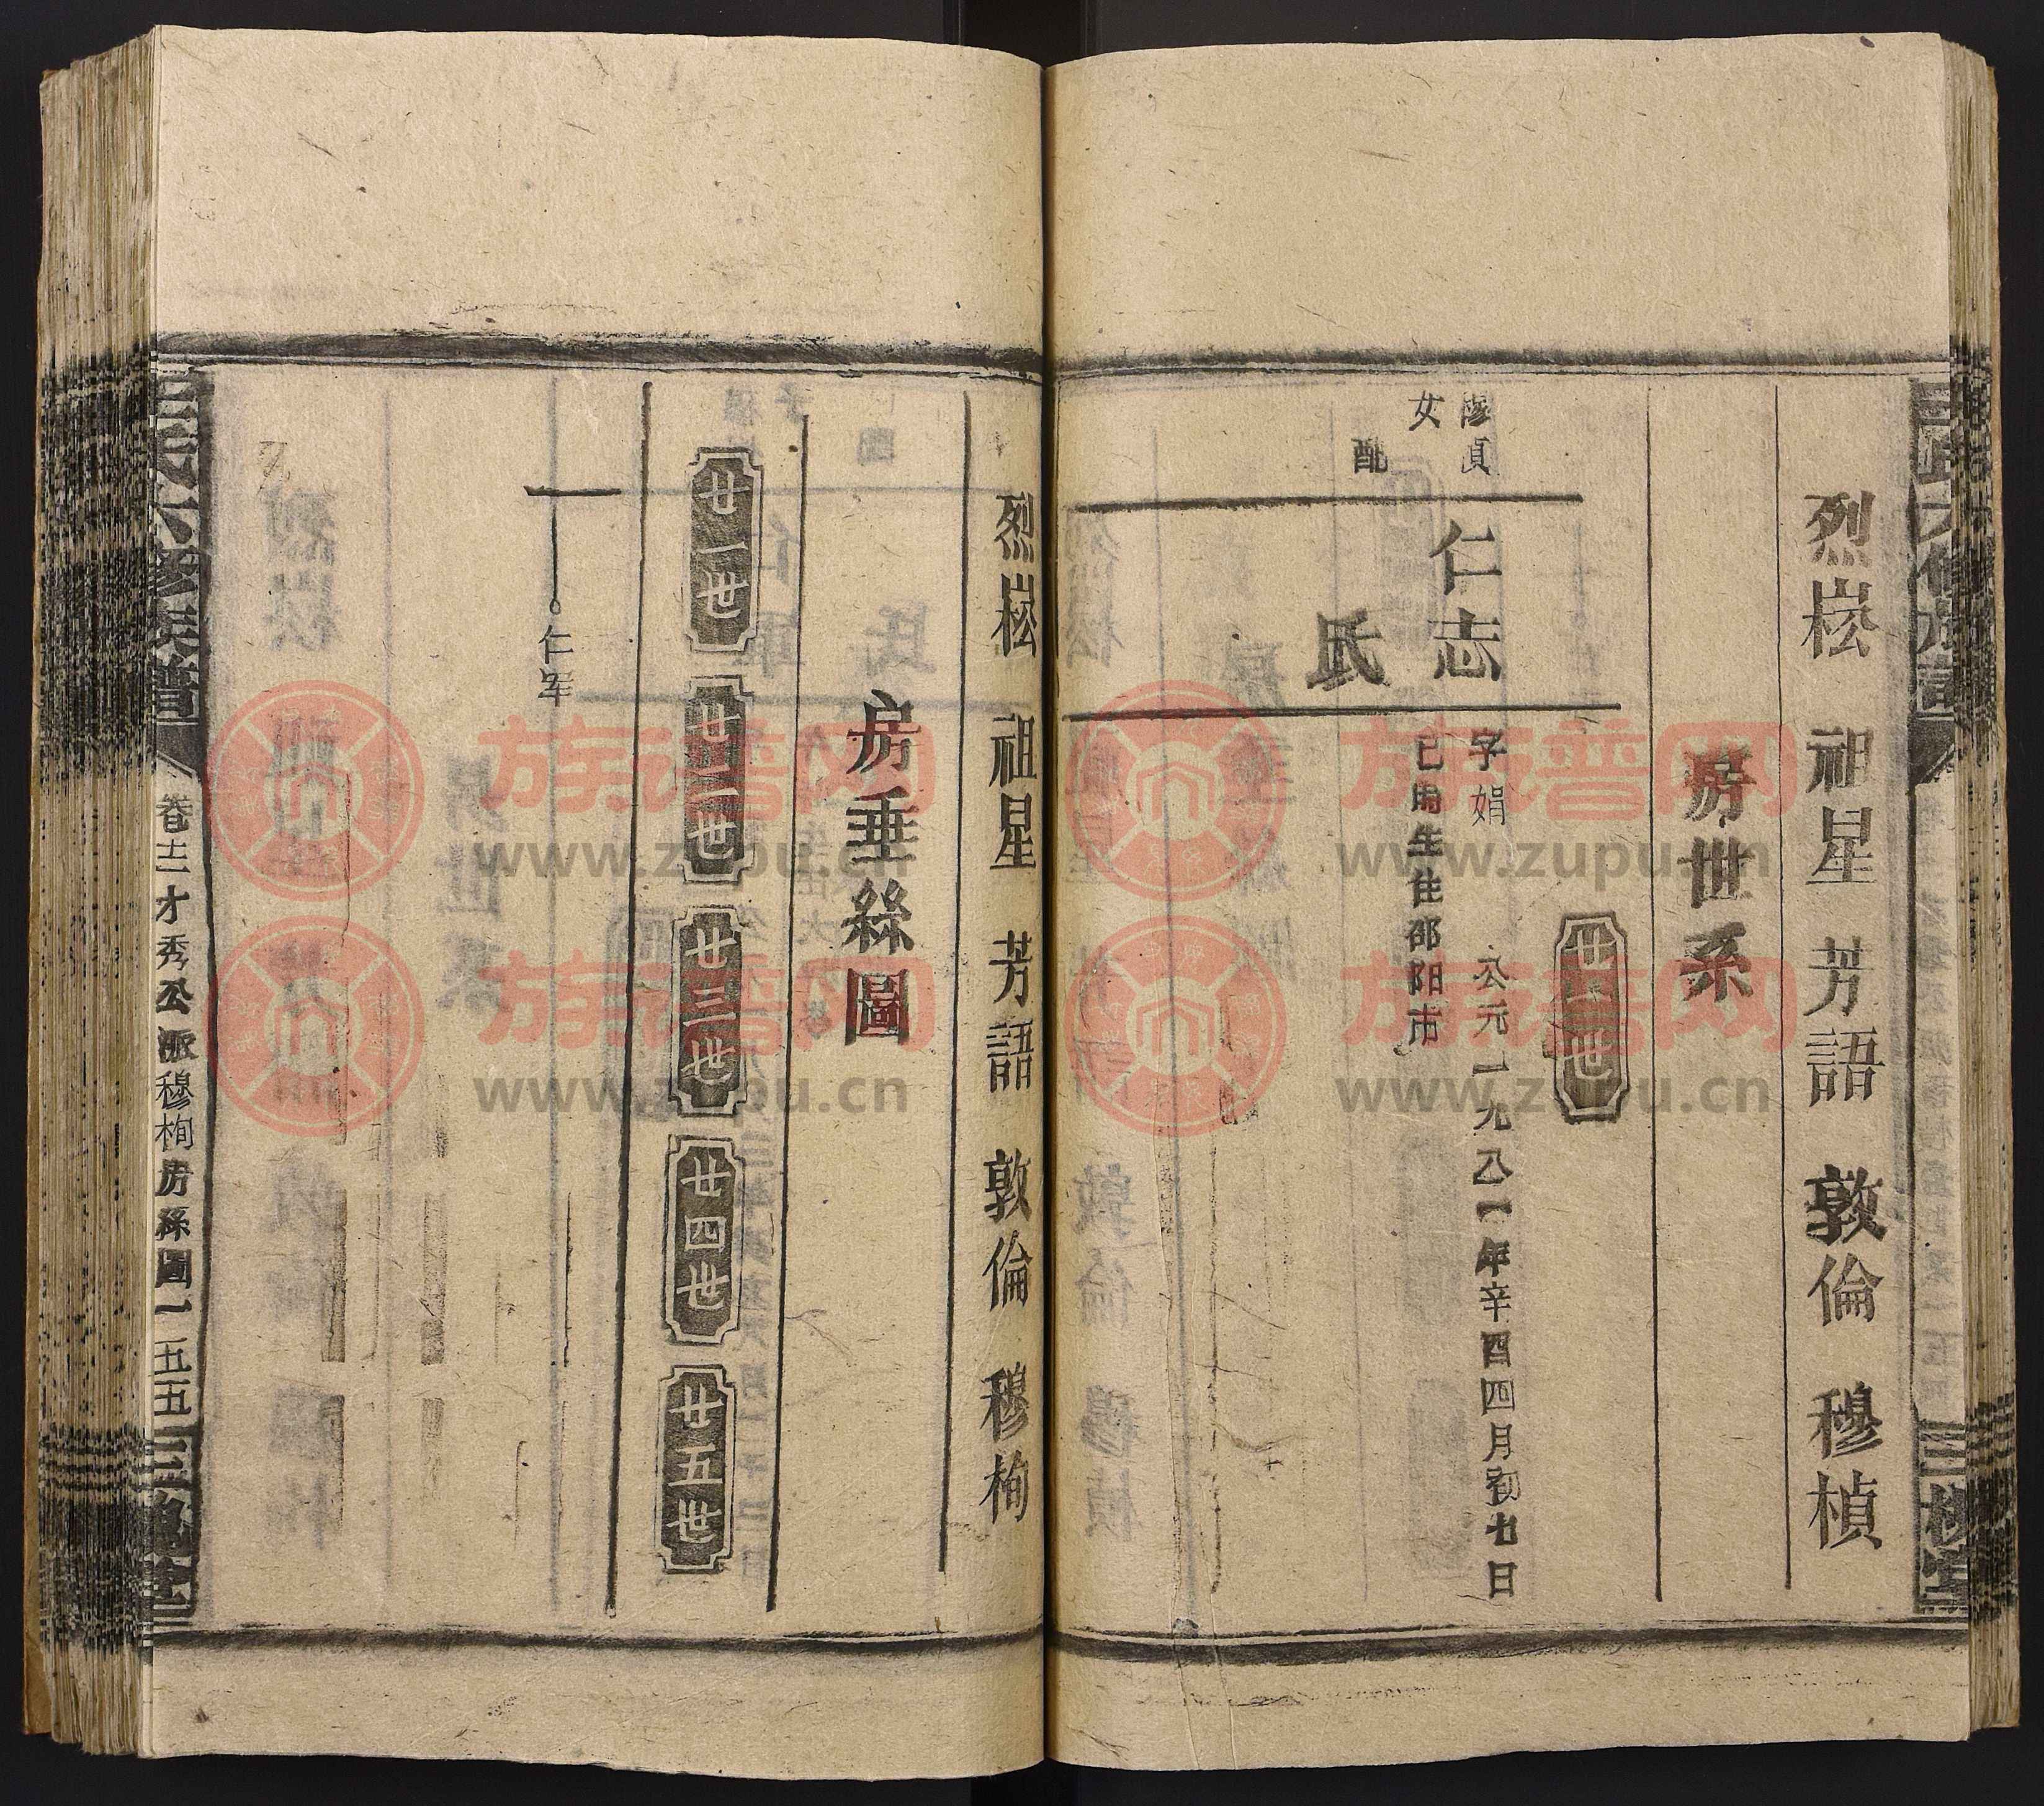 烈崧 祖星 芳語 敦倫 穆楨
房世系
廿一世
穆貞女
仁志
字娟 公元一九八一年辛酉四月初七日
巳時生住邵阳市
配
氏
烈崧 祖星 芳語 敦倫 穆栒
房垂絲圖
廿一世 廿二世 廿三世 廿四世 廿五世
仁军
六修族譜
卷十二才秀公派穆栒房絲圖一五五
三槐堂
族谱网
www.zupu.cn
族谱网
www.zupu.cn
族谱网
www.zupu.cn
族谱网
www.zupu.cn